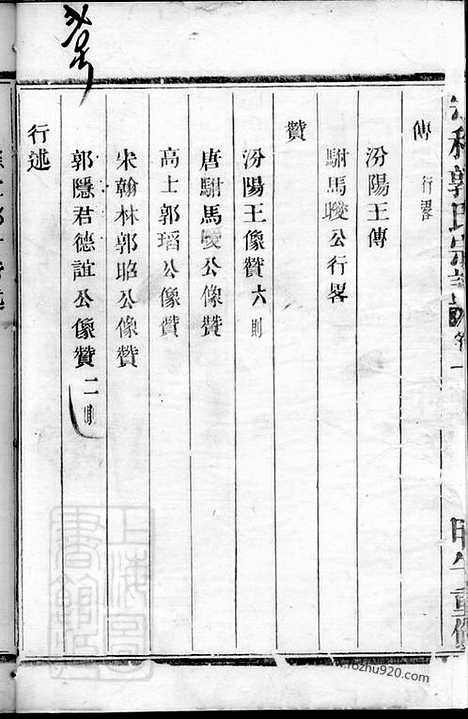 傳 行畧
汾陽王傳
駙馬曖公行畧
贊
汾陽王像贊 六則
唐駙馬曖公像贊
高士郭瑫公像贊
宋翰林郭昭公像贊
郭隱君德誼公像贊 二則
行述
郭氏宗譜
卷一
重修
www.fozhu920.com